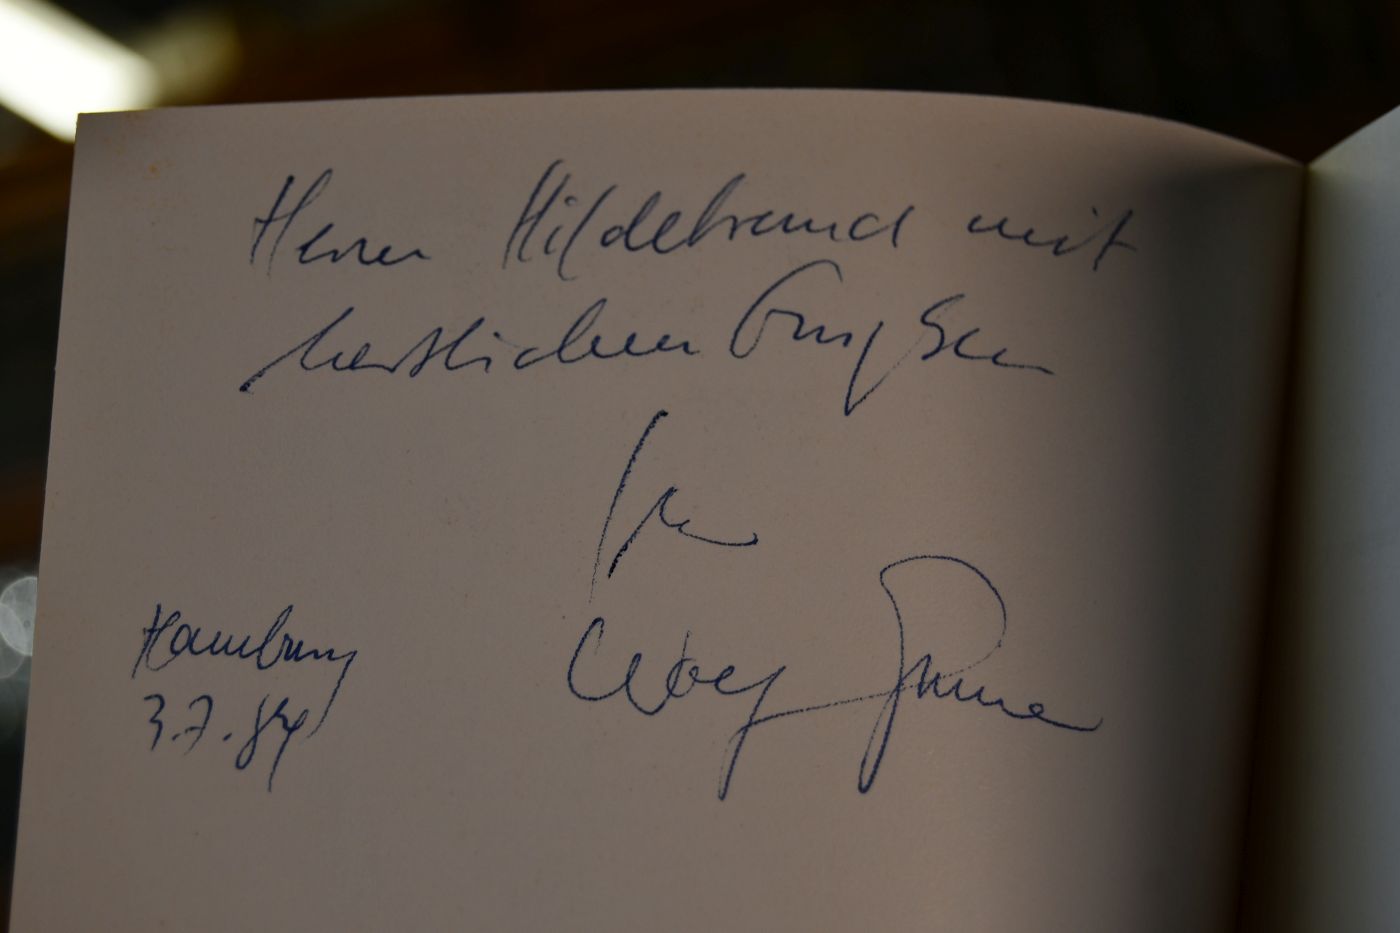 Herrn Hildebrand mit
herzlichen Grüßen
Ihr
Wolf
Hamburg
3.7.84